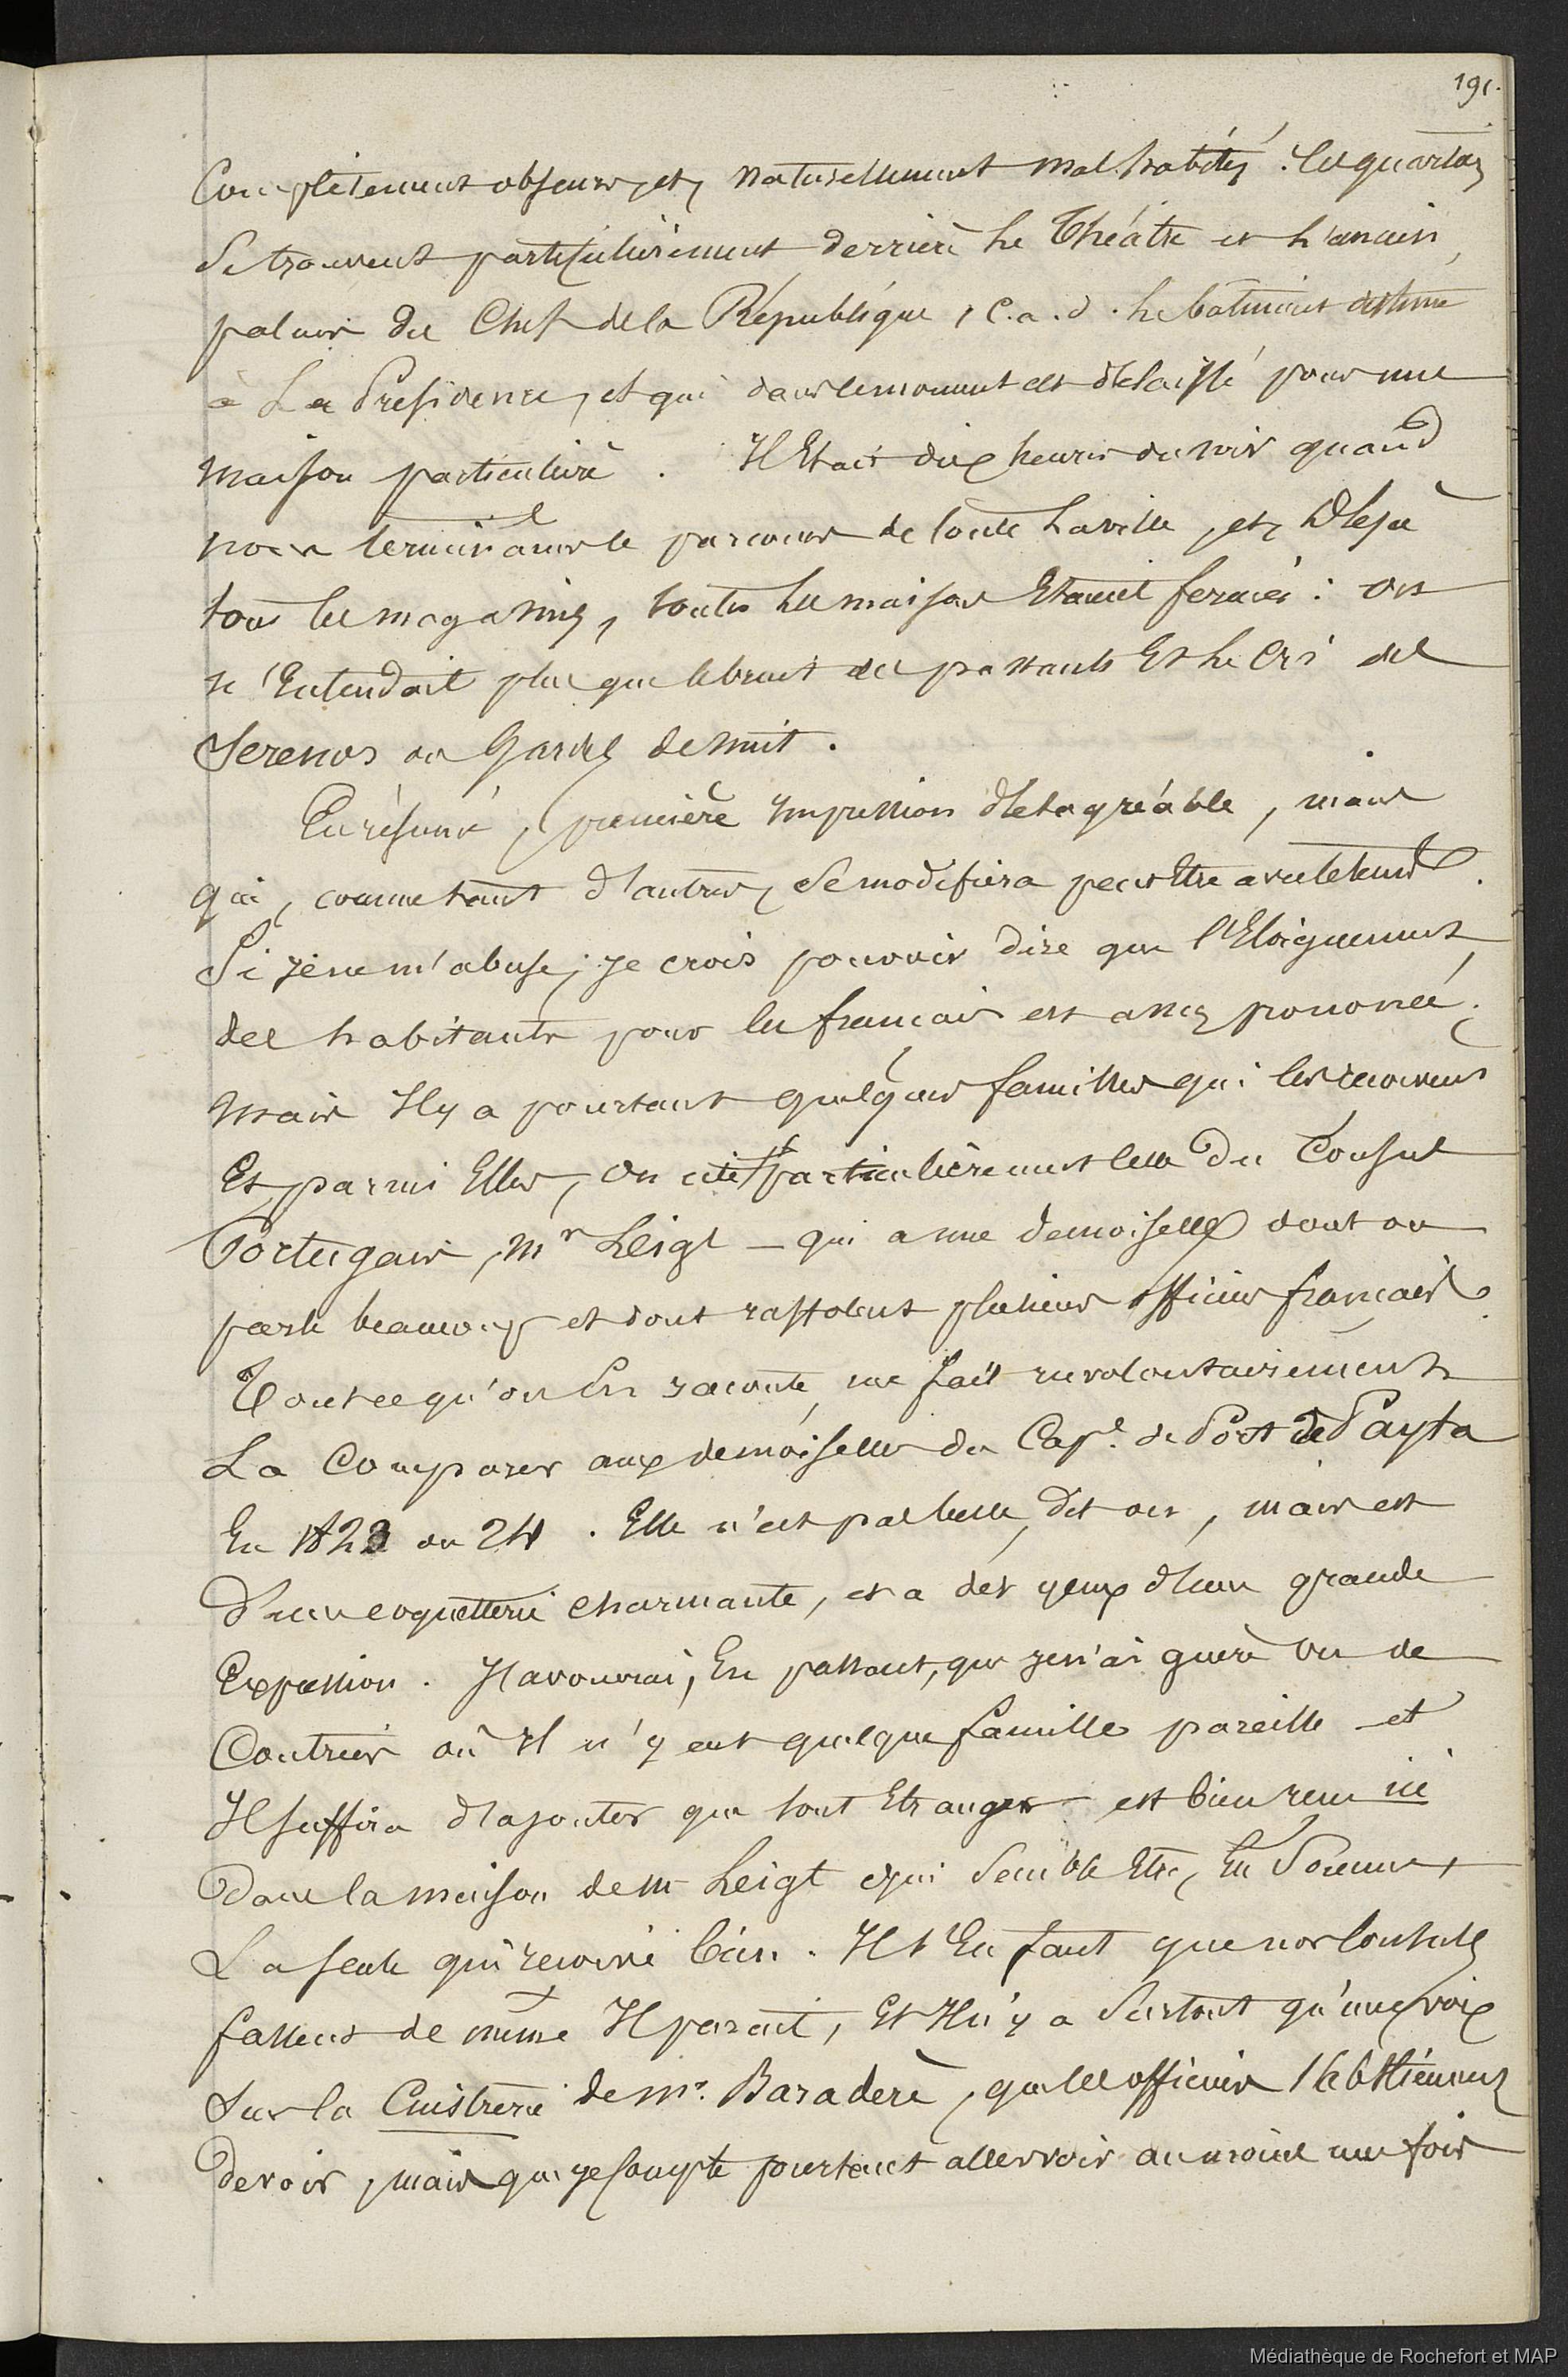 191.
Complètement obscurs, et, naturellement mal habités. Ces quartiers
se trouvent particulièrement derrière le Théâtre et l'ancien
palais du Chef de la République, c.a.d. le bâtiment destiné
à La Présidence, et qui dans le moment est délaissé pour une
maison particulière. Il Etait dix heures du soir quand
nous terminâmes le parcours de toute la ville, et, déjà
tous les magasins, toutes les maisons Etaient fermées : on
n'Entendait plus que le bruit des passants Et le Cri des
Serenos ou Gardes de nuit.
En résumé, première impression désagréable, mais
qui, comme tant d'autres, se modifiera peut être avec le tems.
Si je ne m'abuse, je crois pouvoir dire que l'Eloignement
des habitants pour les français est assez prononcé ;
mais Il y a pourtant quelques familles qui les reçoivent
Et, parmi Elles, on cite particulièrement celle du Consul
Portugais, Mr Leigt — qui a une demoiselle dont on
parle beaucoup et dont raffolent plusieurs officiers français.
Tout ce qu'on En raconte, me fait involontairement
La Comparer aux demoiselles du Cape. de Port de Payta
En 1823 ou 24. Elle n'est pas belle, dit on, mais est
d'une coquetterie charmante, et a des yeux d'une grande
Expression. J'avouerai, En passant, que je n'ai guère vu de
Contrées où Il n'y eut quelque famille pareille et
Il suffira d'ajouter que tout Etranger est bien reçu ici
Dans la maison de Mr Leigt qui semble Etre, En somme,
La seule qui reçoive bien. Il s'En faut que nos Consuls
fassent de même Il parait, Et Il n'y a surtout qu'une voix
Sur la Cuistrerie de Mr. Baradère, que les officiers s'abstiennent
de voir, mais que je compte pourtant aller voir au moins une fois
Médiathèque de Rochefort et MAP